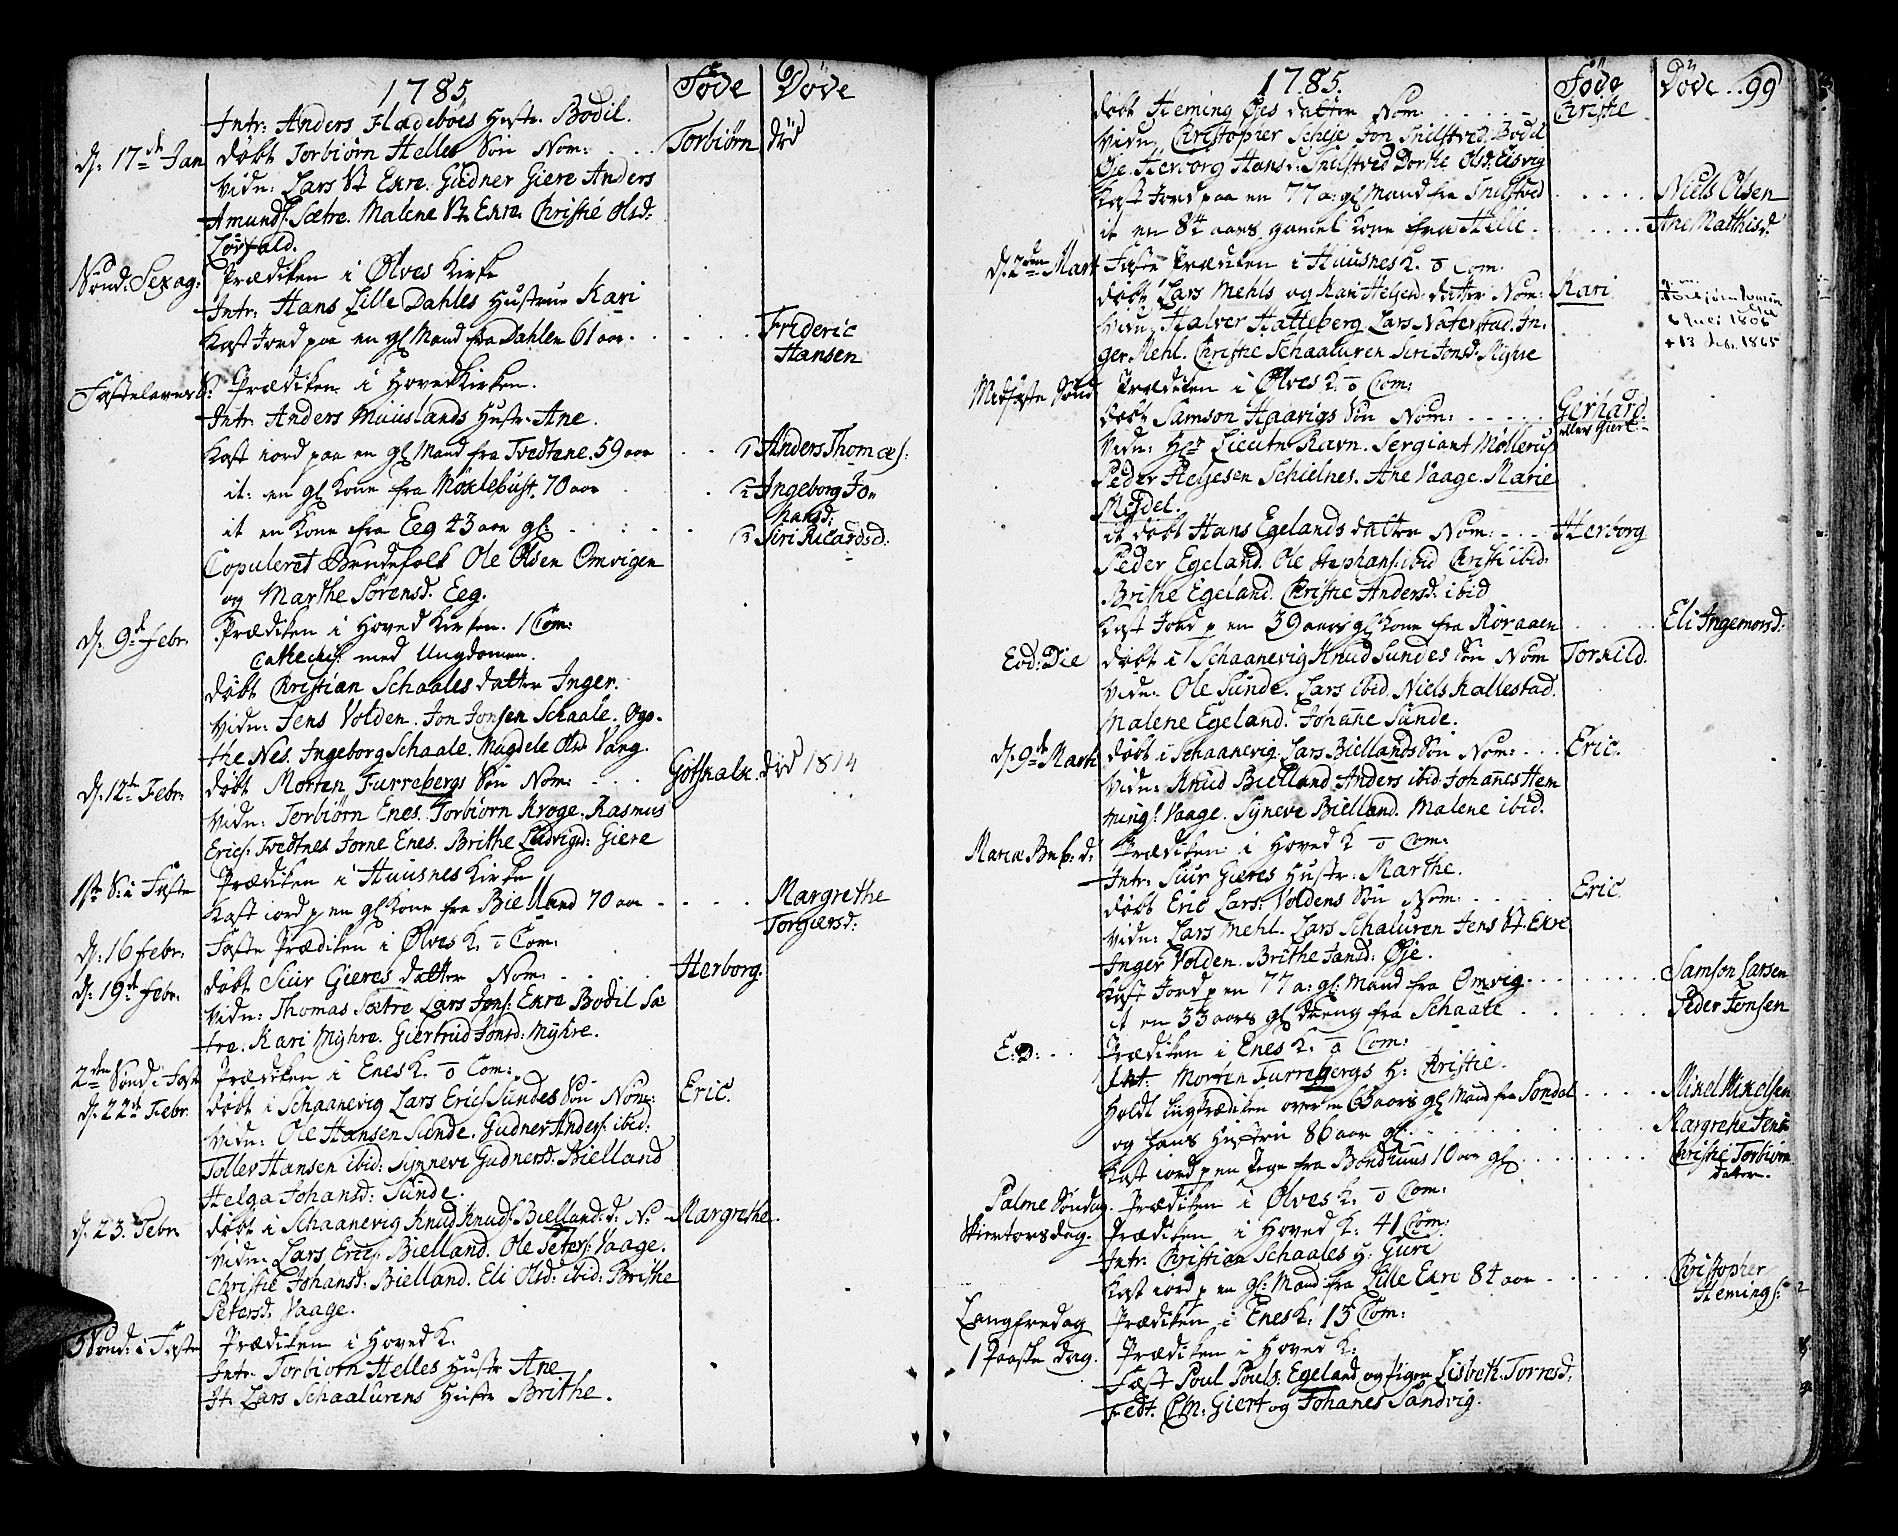 1785 Føde Døve
Intr: Anders Flædebøes Hustr. Bodil.
d: 17de Jan døbt Torbiørn Helles Søn Nom: Torbiørn død
Vidn: Lars Vt Enre. Gudner Giere Anders
Amunds. Sætre. Malene Vt Enre. Christie Olsd:
Løvfald.
Sønd: Sexag: Prædiken i Ølves Kirke
Intr: Hans Lille Dahles Hustrue Kari
Kast Jord paa en gl Mand fra Dahlen 61 aar. Frideric
Hansen
Fastelavens S: Prædiken i Hovedkirken.
Intr: Anders Muuslands Hustr. Ane.
Kast iord paa en gl Mand fra Tvedtene. 59 aar 1 Anders Thomæs:
it: en gl Kone fra Møxlebust. 70 aar 2 Ingeborg Jo-
hansd:
it en Kone fra Eeg 43 aar gl: 3 Siri Ricardsd:
Copuleret Bøndefolk Ole Olsen Omvigen
og Marthe Sørensd. Eeg.
d: 9de Febr. Prædiken i Hoved Kirken. 1 Com:
Catechis: med Ungdomen.
døbt Christian Schaales datter Inger.
Vidn: Jens Volden. Jon Jonsen Schaale. Ogo-
the Nes. Ingeborg Schaale. Magdele Olsd: Vang.
d: 12te Febr: døbt Morten Furrebergs Søn Nom: Gotskalk. død 1814
Vidn: Torbiørn Enes. Torbiorn Kroge. Rasmus
Erics: Tvedtnes Jorne Enes. Brithe Ludvigsd: Giere
1ste S: i Faste Prædiken i Huusnes Kirke
Kast iord p en gl Kone fra Bielland 70 aar Margrethe
Torgiersd:
d: 16 Febr: Faste Prædiken i Ølves K. o Com:
d: 19de Febr: døbt Siur Gieres datter Nom: Herborg.
Vidn: Thomas Sætre Lars Jons: Enre Bodil Sæ
tre. Kari Myhre. Giertrud Jonsd: Myhre.
2den Sønd i Fast Prædiken i Enes K. o Com:
d: 22de Febr. døbt i Schaanevig Lars Erics Sundes Søn Nom: Eric.
Vidn: Ole Hansen Sunde. Gudner Anders: ibid:
Tollev Hansen ibid: Synneve Gudnersd: Bielland
Helga Johansd: Sunde.
d: 23. Febr døbt i Schaanevig Knud Knuds: Bielland: d: N: Margrethe.
Vidn: Lars Erics: Bielland. Ole Peters: Vaage.
Christie Johansd: Bielland. Eli Olsd: ibid: Brithe
Petersd: Vaage.
3 Sønd: i Faste Prædiken i Hoved K.
Intr: Torbiorn Helles Hustr Ane
It: Lars Schaalurens Hustr Brithe.
1785. Føde Døve 99
døbt Heming Øjes datter Nom Christie
Vidn Christopher Scheje Jon Snilstved. Bodil
Øje Herborg Hans: Snilstved Dorthe Olsd: Eisvig
Kast Jord paa en 77 a: gl Mand fra Snilstved Niels Olsen
it en 84 aars gamel Kone fra Helle Ane Mathisd:
d: 2den Mart Faste Prædiken i Huusnes K. o Com.
døbt Lars Mehls og Kari Helsesd: datter Nom: Kari
6 Juli 1806
+ 13 1865
Vidn: Halver Hatteberg Lars Naterstad. In-
ger Mehl. Christie Schaaluren Siri Jonsd. Myhre
Midfaste Sønd Prædiken i Ølves K. o Com:
døbt Samson Haavigs Søn Nom: Gerhard.
eller Giert
Vidn: Hr Lieutn: Ravn. Sergiant Møllerup
Peder Helsesen Schielnes. Ane Vaage. Marie
Mejdel.
it døbt Hans Egelands datter Nom: Herborg
Peder Egeland. Ole Stephans: ibid Christi ibid:
Brithe Egeland. Christie Andersd: ibid
Kast Jord p en 39 aars gl Kone fra Røraaen Eli Ingemorsd:
Eod: Die døbt i Schaanevig Knud Sundes Søn Nom Torkild.
Vidn: Ole Sunde. Lars ibid. Niels Kallestad.
Malene Egeland. Johane Sunde.
d: 9de Marti døbt i Schaanevig: Lars Biellands Søn Nom: Eric.
Vidn: Knud Bielland. Anders ibid Johanes Hem
mings: Vaage. Syneve Bielland. Malene ibid.
Mariæ Beb: d: Prædiken i Hoved K o Com:
Intr: Siur Gieres Hustr: Marthe.
døbt Eric Lars: Voldens Søn Nom: Eric
Vidn: Lars Mehl. Lars Schaluren Jens Vt. Enre
Inger Volden. Brithe Jansd: Øje.
Kast Jord p en 77 a: gl: Mand fra Omvig. Samson Larsen
it en 33 aars gl Dreng fra Schaale Peder Jonsen
E: D: Prædiken i Enes K. o Com:
Int: Morten Furrebergs H: Christie.
Holdt Liigprædiken over en 65 aars gl Mand fra Sondal Mikel Mikelsen
og hans Hustru 86 aar gl: Margrethe Jens
Kast iord p en Pige fra Bondhuus 10 aar gl Christie Torbiørn
datter.
Palme Søndag. Prædiken i Ølves K. o Com:
Skiertorsdag. Prædiken i Hoved K: 41 Com:
Intr: Christian Schaales H: Guri
Kast iord p en gl: Mand fra Lille Enre 84 aar Christopher
Hemings:
Langfredag Prædiken i Enes K: 13 Com:
1 Paaske Dag. Prædiken i Hoved K:
Fæst Poul Pouls: Egeland og Pigen Lisbeth. Torresd:
Fedt. Cm: Giert og Johanes Sandvig.